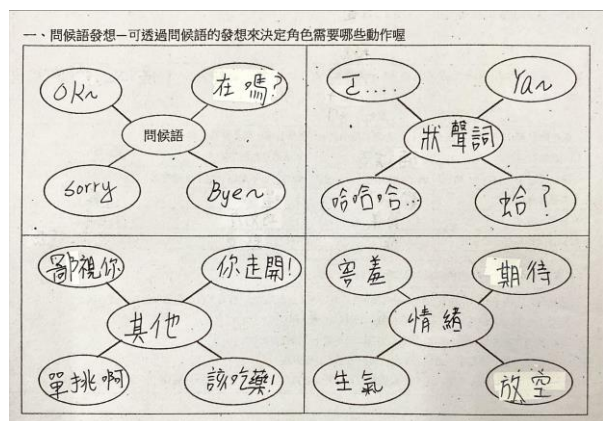 一、問候語發想—可透過問候語的發想來決定角色需要哪些動作喔
OK~
在嗎?
問候語
sorry
Bye~
ㄛ....
Ya~
狀聲詞
哈哈哈...
蛤?
鄙視你
你走開!
其他
單挑啊
該吃藥!
害羞
期待
情緒
生氣
放空